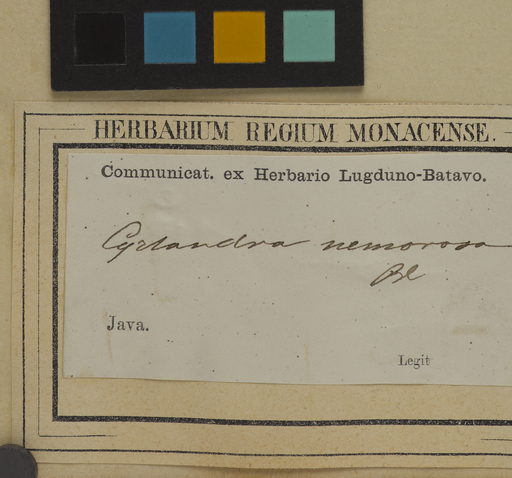 HERBARIUM REGIUM MONACENSE.
Communicat. ex Herbario Lugduno-Batavo.
Cyrtandra nemorosa
Bl
Java.
Legit